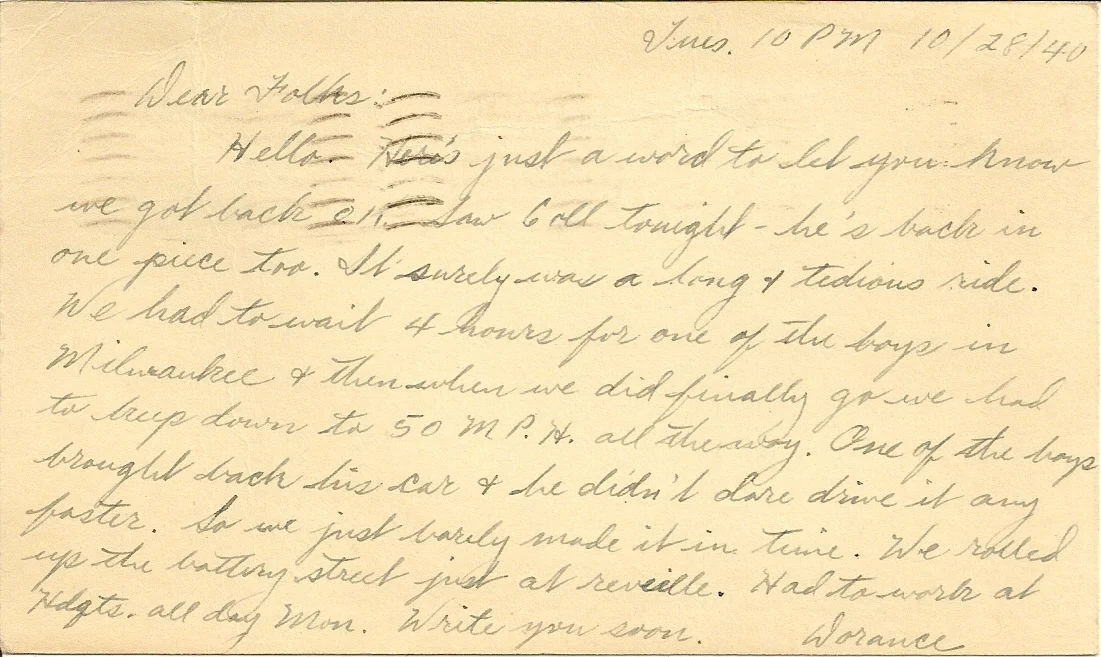 Tues. 10 PM 10/28/40
Dear Folks:
Hello. Here's just a word to let you know
we got back OK. Saw Coll tonight - he's back in
one piece too. It surely was a long & tedious ride.
We had to wait 4 hours for one of the boys in
Milwaukee & then when we did finally go we had
to keep down to 50 M.P.H. all the way. One of the boys
brought back his car & he didn't dare drive it any
faster. So we just barely made it in time. We rolled
up the battery street just at reveille. Had to work at
Hdqts. all day Mon. Write you soon.
Dorance